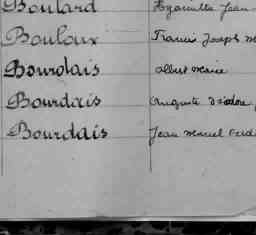 Boulard Hyacinthe Jean
Bouloux Francis Joseph M
Bourdais Albert Marie
Bourdais Auguste Isidore
Bourdais Jean Marcel Ferd